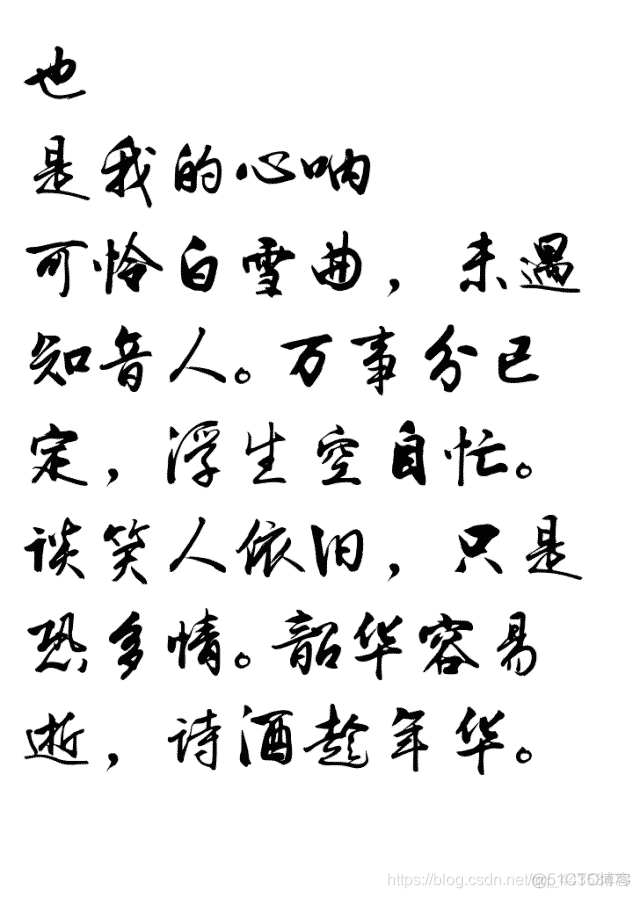 也
是我的心呐
可怜白雪曲，未遇
知音人。万事分已
定，浮生空自忙。
谈笑人依旧，只是
恐多情。韶华容易
逝，诗酒趁年华。
https://blog.csdn.net/
@51CTO博客